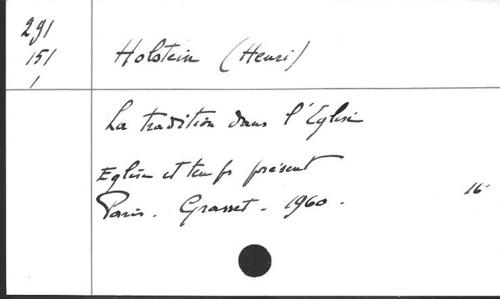 291
151
1
Holstein (Henri)
La tradition dans l'Eglise
Eglise et temps présent
Paris. Grasset. 1960.
16